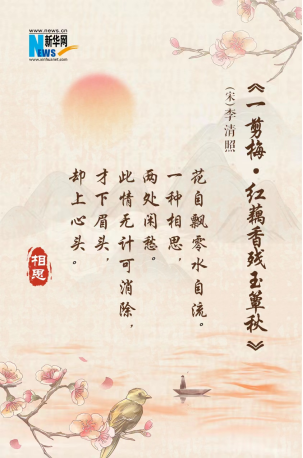 新华网
NEWS
www.news.cn
www.xinhuanet.com
《一剪梅·红藕香残玉簟秋》
（宋）李清照
花自飘零水自流。
一种相思，
两处闲愁。
此情无计可消除，
才下眉头，
却上心头。
相思